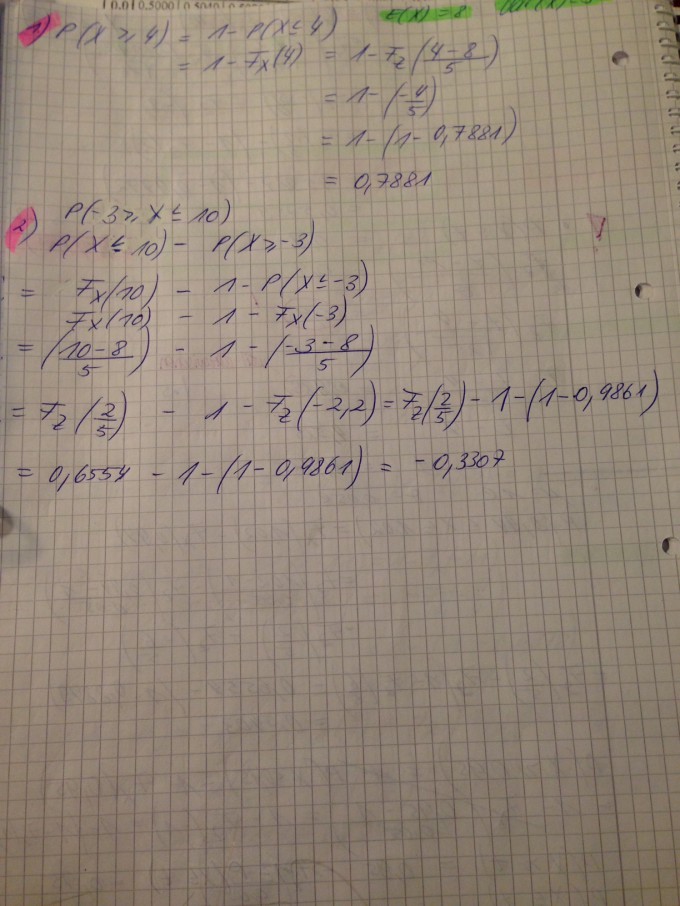 0.0 0.5000 0.5040
E(X) = 8
1) P(X ≥ 4) = 1 - P(X ≤ 4)
= 1 - Fx(4) = 1 - Fz(4-8/5)
= 1 - (-4/5)
= 1 - (1 - 0,7881)
= 0,7881
2) P(-3 ≥ X ≤ 10)
P(X ≤ 10) - P(X ≥ -3)
= Fx(10) - 1 - P(X ≤ -3)
Fx(10) - 1 - Fx(-3)
= (10-8/5) - 1 - (-3-8/5)
= Fz(2/5) - 1 - Fz(-2,2) = Fz(2/5) - 1 - (1 - 0,9861)
= 0,6554 - 1 - (1 - 0,9861) = -0,3307